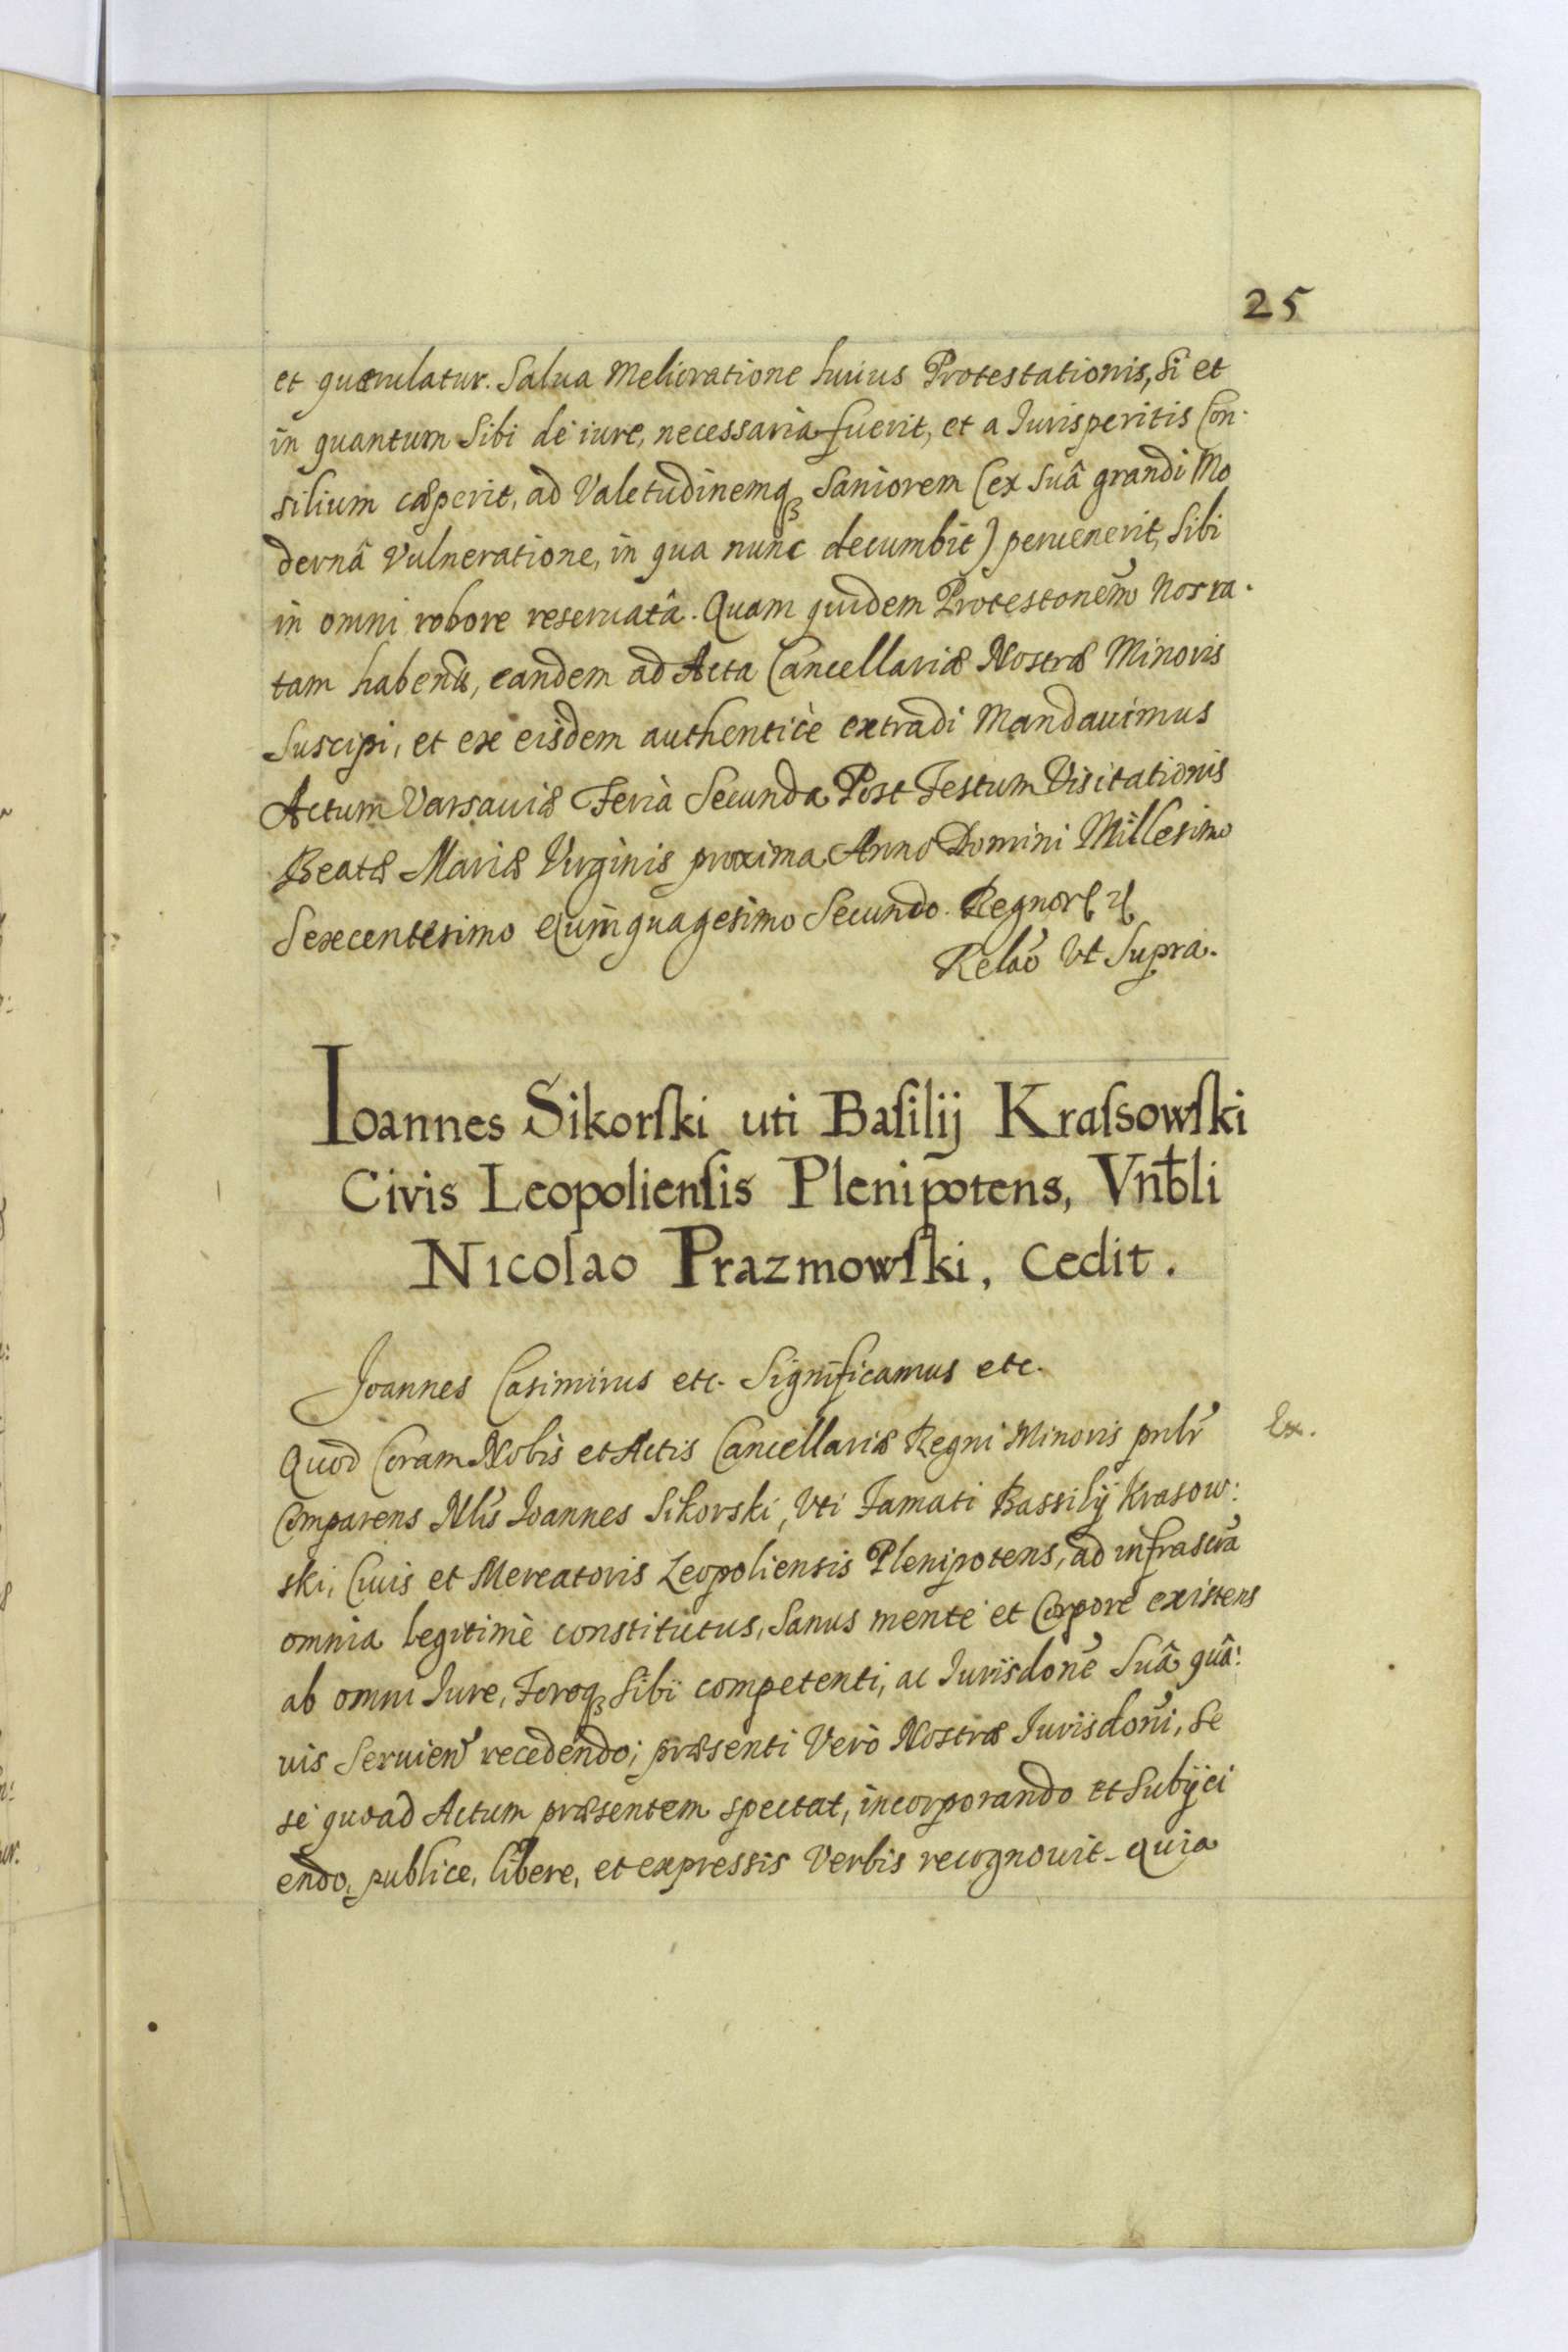 25
et quærulatur. Salua Melioratione huius Protestationis, si et
in quantum Sibi de iure, necessaria fuerit, et a Jurisperitis Con-
silium cæperit, ad Valetudinemqꝫ Saniorem (ex Suâ grandi Mo
dernâ Vulneratione, in qua nunc decumbit) peruenerit, Sibi
in omni robore reseruatâ. Quam quidem Protestonem̃ Nos ra-
tam haben̄, eandem ad Acta Cancellariæ Nostræ Minoris
Suscipi, et ex eisdem authenticè extradi Mandauimus
Actum Varsauiæ Feria Secunda Post Festum Visitationis
Beatæ Mariæ Virginis proxima Anno Domini Millesimo
Sexcentesimo Quinquagesimo Secundo. Regnor ꝛc
Relaõ Vt Supra.
Ioannes Sikorſki uti Baſilij Kraſsowſki
Civis Leopolienſis Plenip̄otens, Vnb̄li
Nicolao Prazmowſki, Cedit.
Joannes Casimirus etc. Significamus etc.
Quod Coram Nobis et Actis Cancellariæ Regni Minoris pnlr̃
Ex.
Comparens Nlis̃ Joannes Sikorski, Vti Famati Bassilij Krasow:
ski, Ciuis et Mercatoris Leopoliensis Plenipotens, ad infrascrã
omnia legitimè constitutus, Sanus mente et Corpore existens
ab omni Jure, Foroqꝫ Sibi competenti, ac Jurisdone̴ Suâ quâ:
uis Seruien̄ recedendo; præsenti Verò Nostræ Jurisdoni̴, Se
se quoad Actum præsentem spectat, incorporando et Subijci
endo, publice, libere, et expressis Verbis recognouit. quia